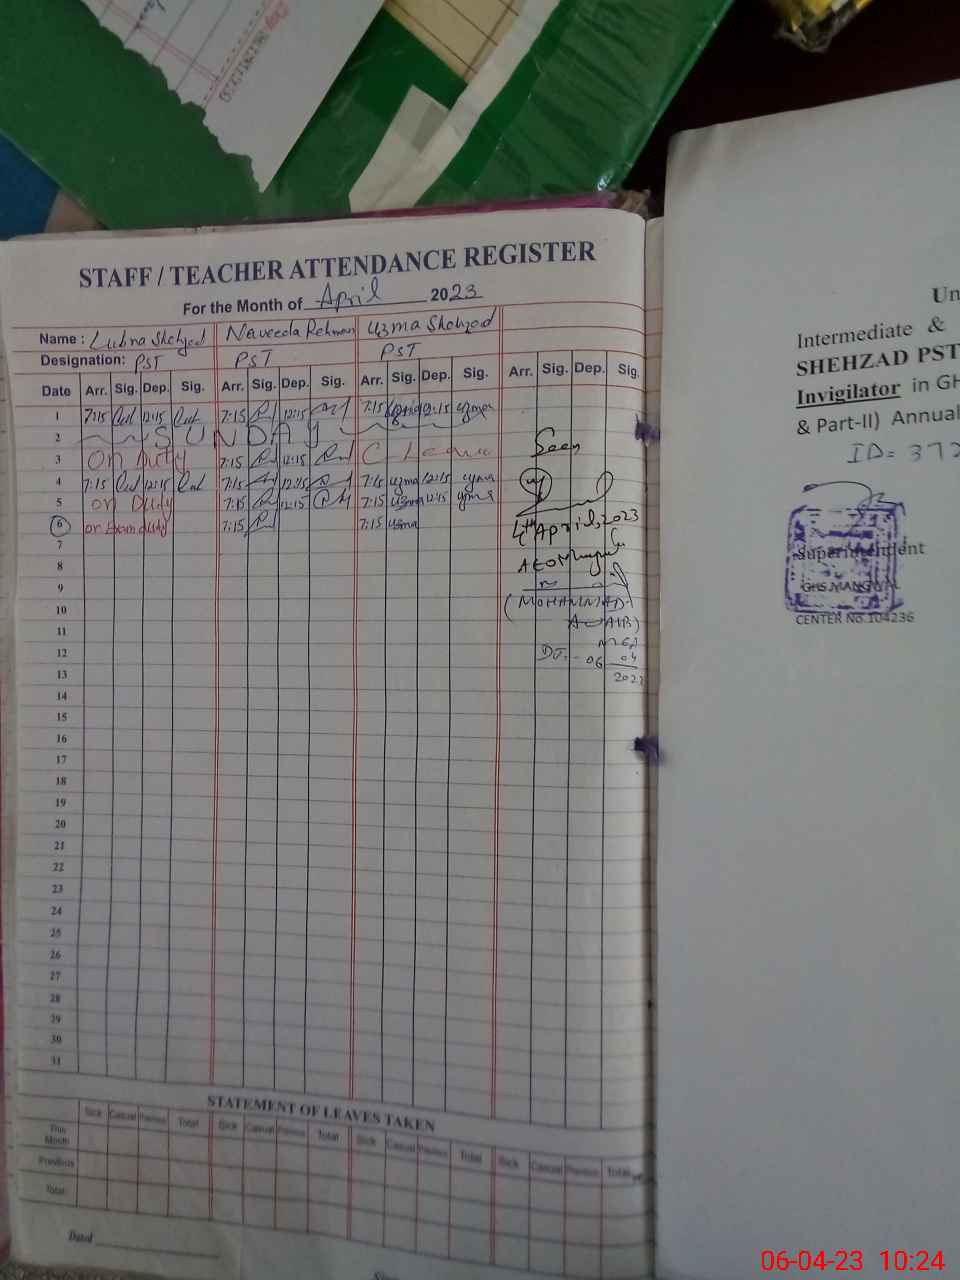 STAFF / TEACHER ATTENDANCE REGISTER
For the Month of April 2023
Name : Lubna Shehzad Naveeda Rehman Uzma Shehzad
Designation: PST PST PST
Date Arr. Sig. Dep. Sig. Arr. Sig. Dep. Sig. Arr. Sig. Dep. Sig. Arr. Sig. Dep. Sig.
1 7:15 12:15 7:15 12:15 7:15 uzma 12:15 uzma
2 SUNDAY
3 On Duty 7:15 12:15 C Leave Seen
4 7:15 12:15 7:15 12:15 7:15 uzma 12:15 uzma
5 on Duty 7:15 12:15 7:15 uzma 12:15 uzma
6 on Exam duty 7:15 7:15 uzma 4th April, 2023
7
8
9
10 (MOHAMMAD
11
12 DT:- 06
13 04
14 2023
15
16
17
18
19
20
21
22
23
24
25
26
27
28
29
30
31
STATEMENT OF LEAVES TAKEN
Sick Casual Previous Total Sick Casual Previous Total Sick Casual Previous Total Sick Casual Previous Total
This Month
Previous
Total
Dated
Un
Intermediate &
SHEHZAD PST
Invigilator in GH
& Part-II) Annual
ID = 372
Superintendent
GHS MANGWAL
CENTER No.104236
06-04-23 10:24